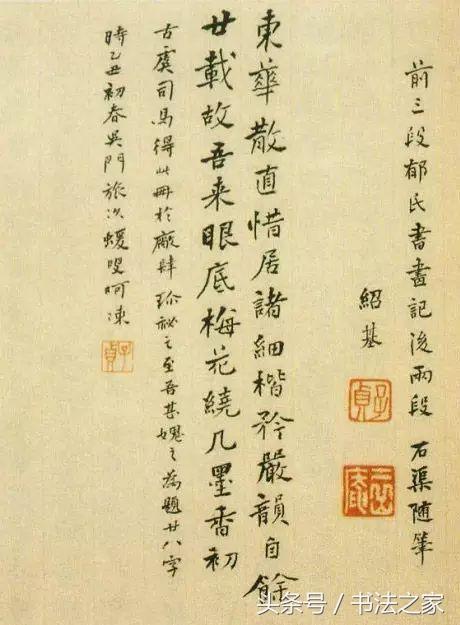 前三段郁氏書畫記後兩段石渠随筆
紹基
子貞
東華散直惜居諸細楷矜嚴韻自餘
廿載故吾来眼底梅花繞几墨香初
古虞司馬得此冊於廠肆珎祕之至吾甚媿之為題廿八字
時乙丑初春吳門旅次蝯叟呵凍
子貞
头条号 / 书法之家